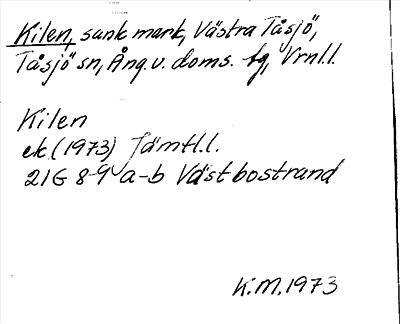 Kilen, sank mark, Västra Tåsjö,
Tåsjö sn, Ång. v. doms. fg, Vrnl.l.
Kilen
ek (1973) Jämtl.l.
21G 8-9 a-b Västbostrand
K.M. 1973